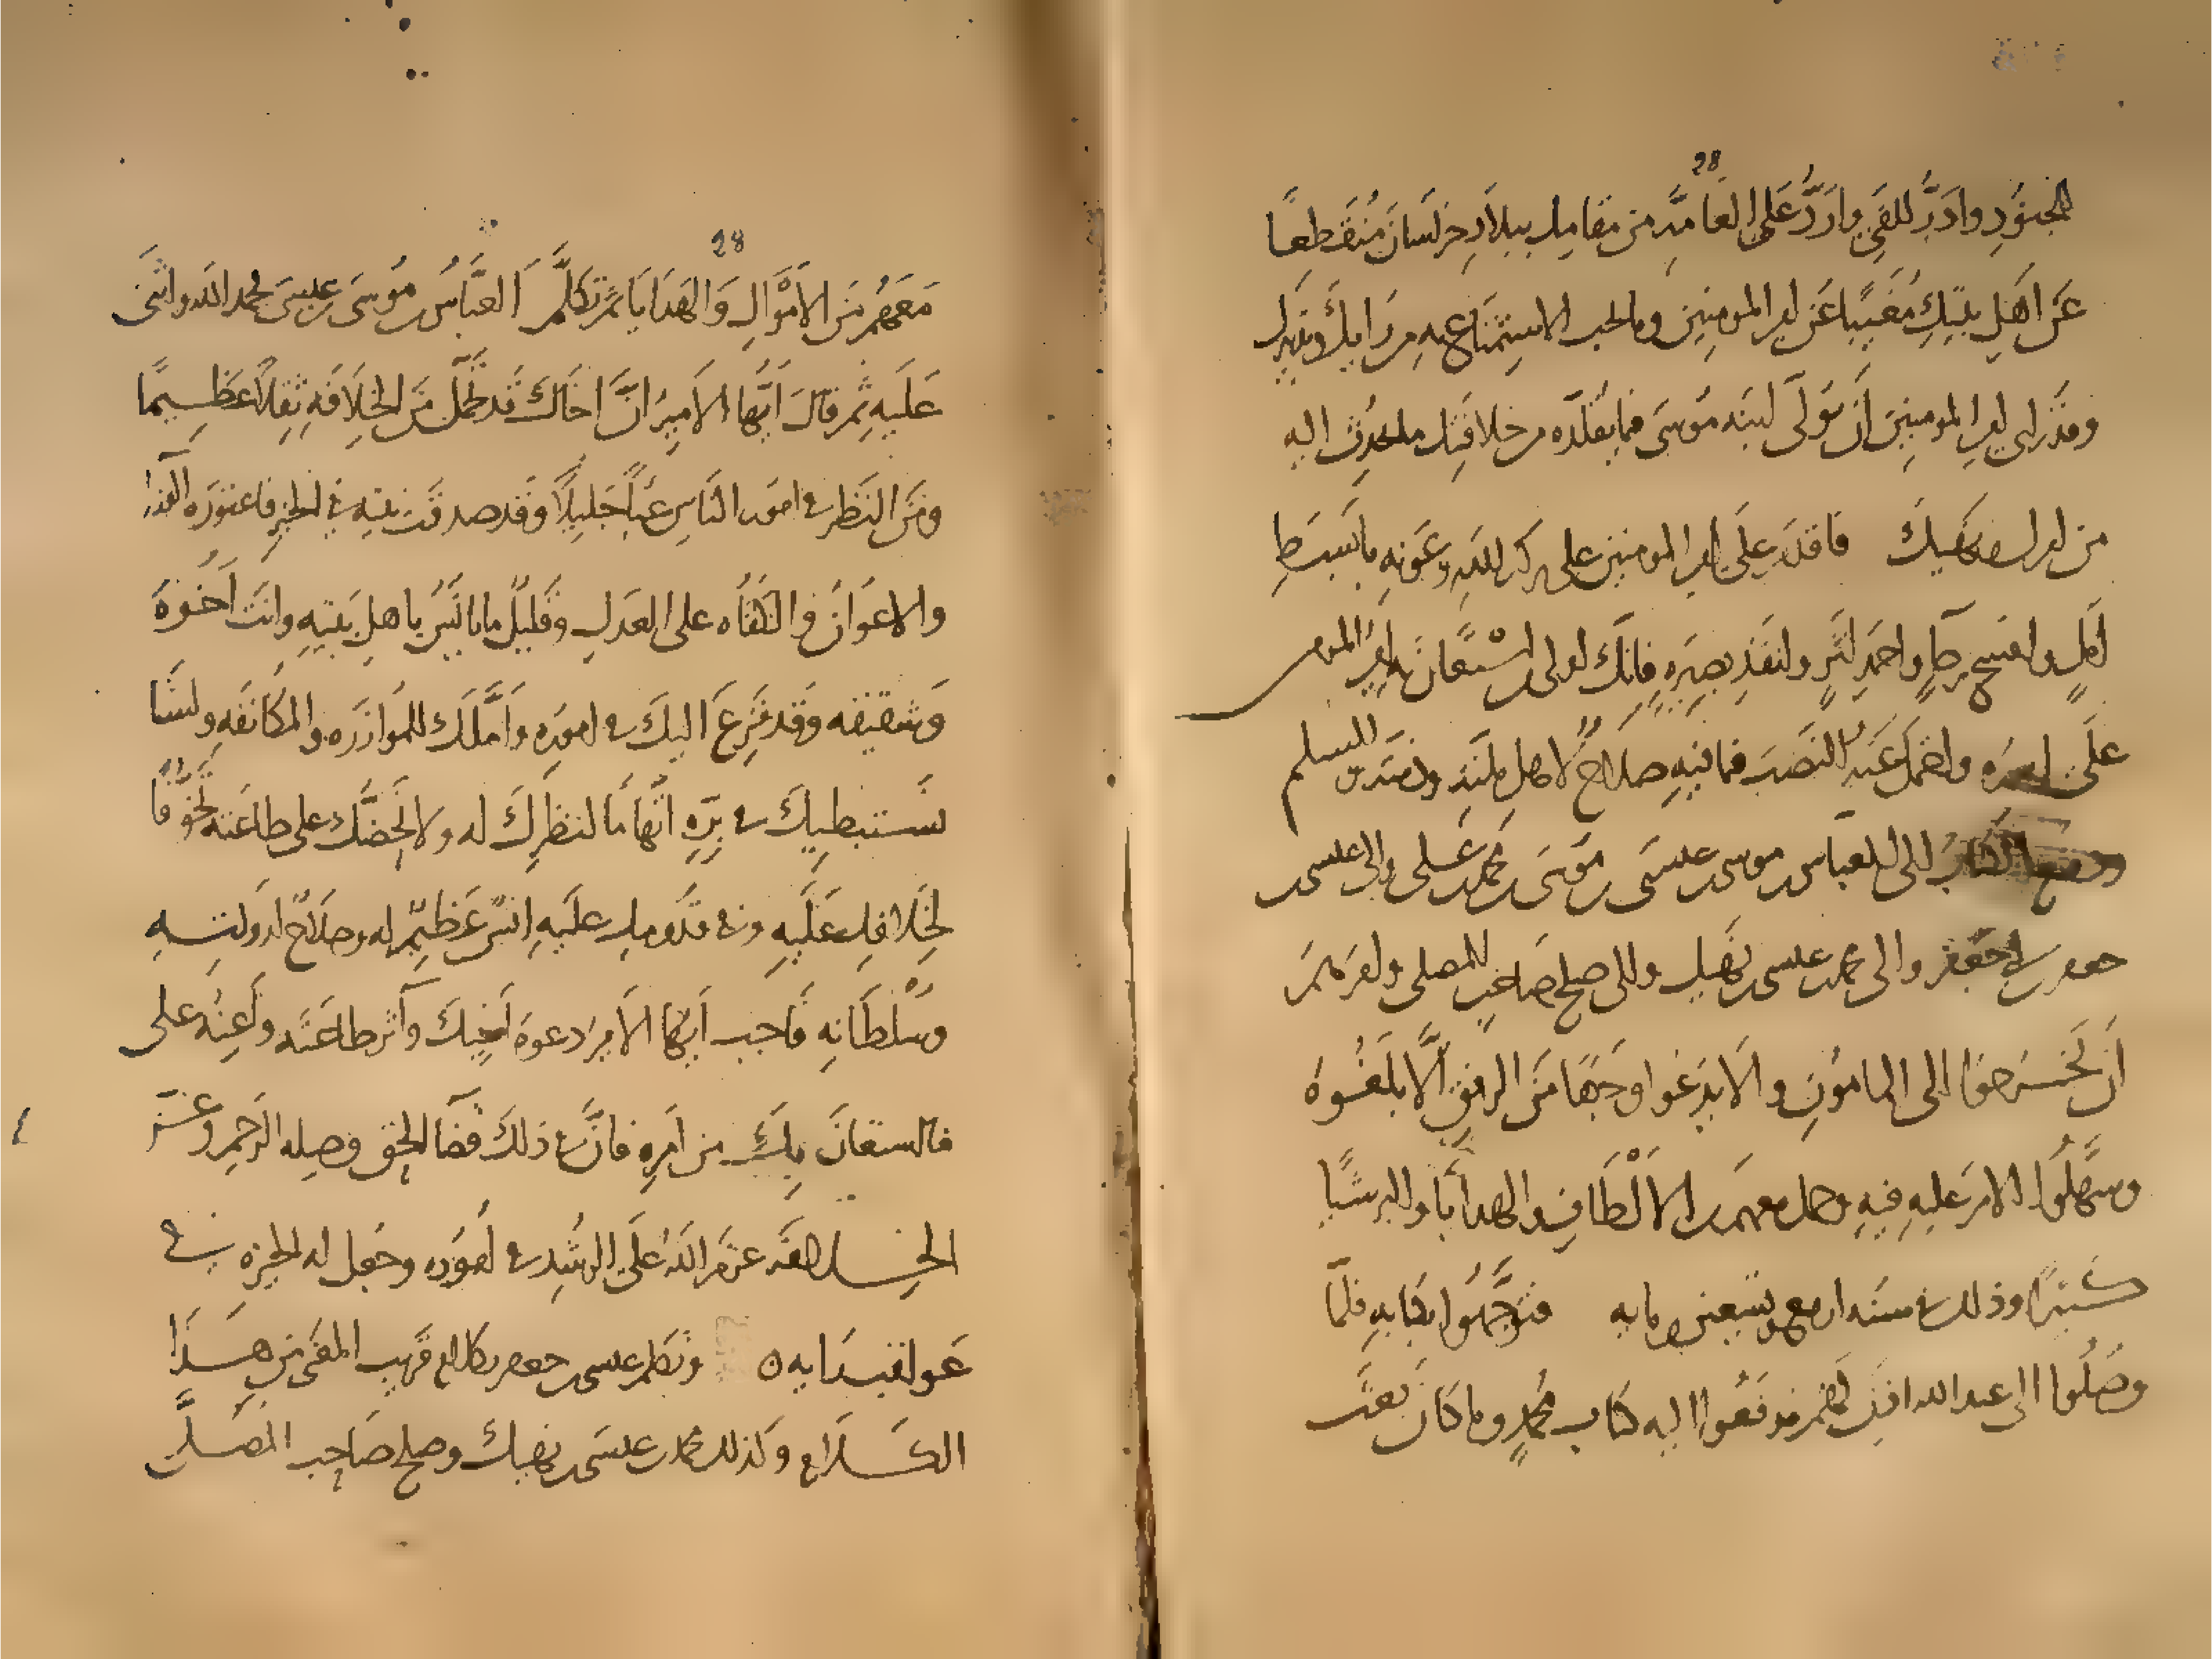 28
للجنود وادر للفى وارد على العامه من مقامك ببلاد خراسان منقطعا
عن اهل بيتك مغيبا عن امير المومنين وما يحب الاستمتاع به من رايك وتدبيرك
وقد راى امير المومنين ان يولى ابنه موسى فيما يقلده من خلافتك ما يحدث اليه
من امرك ونهيك فاقدم على امير المومنين على بركه الله وعونه بابسط
امل وافسح رجا واحمد اثر وانفذ بصيره فانك اولى من استعان به امير المومنين
على اموره واحتمل عنه النصب فيما فيه صلاح لاهل ملته وذمته والسلم
ودفع الكتاب الى العباس بن موسى بن عيسى بن موسى بن محمد بن على والى عيسى بن
جعفر بن ابى جعفر والى محمد بن عيسى بن نهيك والى صلح صاحب المصلى وامرهم
ان يخرجوا الى المامون والا يدعوا وجها من الرفق الا بلغوه
وسهلوا الامر عليه فيه وحمل معهم من الالطاف والهدايا والبر شيا
كثيرا وذلك فى سنه اربع وتسعين ومايه فتوجهوا بكتابه فلما
وصلوا الى عبد الله اذن لهم فدفعوا اليه كتاب محمد وما كان بعث
28
معهم من الاموال والهدايا ثم تكلم العباس بن موسى بن عيسى فحمد الله واثنى
عليه ثم قال ايها الامير ان اخاك قد تحمل من الخلافه ثقلا عظيما
ومن النظر فى امور الناس عبا جليلا وقد صدقت نيته فى الخير فاعوزه الوزرا
والاعوان والكفاه على العدل وقليل ما يانس باهل بيته وانت اخوه
وشقيقه وقد فزع اليك فى اموره واملك للموازره والمكانفه ولسنا
نستبطيك فى بره اتهاما لنظرك له ولا نحضك على طاعته تخوفا
لخلافك عليه وفى قدومك عليه انس عظيم له وصلاح لدولته
وسلطانه فاجب ايها الامير دعوه اخيك واثر طاعته واعنه على
ما استعانك من امره فان فى ذلك قضا الحق وصله الرحم وعز
الخلافه عزم الله للامير على الرشد فى اموره وجعل له الخيره فى
عواقب رايه ه وتكلم عيسى بن جعفر بكلام قريب المعنى من هذا
الكلام وكذلك محمد بن عيسى بن نهيك وصلح صاحب المصلى